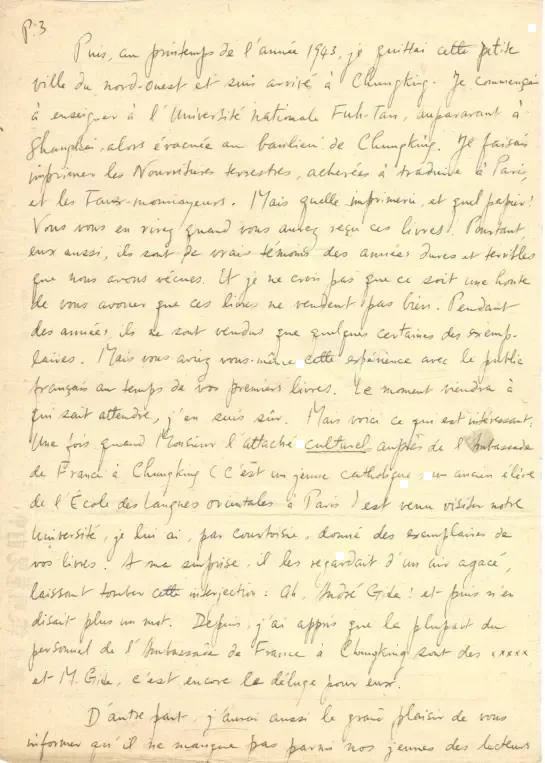 P.3
Puis, au printemps de l'année 1943, je quittai cette petite
ville du nord-ouest et suis arrivé à Chungking. Je commençai
à enseigner à l'Université nationale Fuh-Tan, auparavant à
Shanghai, alors évacuée au banlieu de Chungking. Je faisais
imprimer les Nourritures terrestres, achevées à traduire à Paris,
et les Faux-monnayeurs. Mais quelle imprimerie, et quel papier!
Vous vous en rirez quand vous aurez reçu ces livres. Pourtant,
eux aussi, ils sont de vrais témoins des années dures et terribles
que nous avons vécues. Et je ne crois pas que ce soit une honte
de vous avouer que ces livres ne vendent pas bien. Pendant
des années ils ne sont vendus que quelques certaines des exemp-
laires. Mais vous aviez vous-même cette expérience avec le public
français au temps de vos premiers livres. Le moment viendra à
qui sait attendre, j'en suis sûr. Mais voici ce qui est intéressant.
Une fois quand Monsieur l'attaché culturel auprès de l'Ambassade
de France à Chungking (c'est un jeune catholique, un ancien élève
de l'École des langues orientales à Paris) est venu visiter notre
Université, je lui ai, par courtoisie, donné des exemplaires de
vos livres. A ma surprise, il les regardait d'un air agacé,
laissant tomber cette interjection: Ah, André Gide! et puis n'en
disait plus un mot. Depuis, j'ai appris que la plupart du
personnel de l'Ambassade de France à Chungking sont des xxxxx
et M. Gide, c'est encore le déluge pour eux.
D'autre part, j'aurai aussi le grand plaisir de vous
informer qu'il ne manque pas parmi nos jeunes des lecteurs